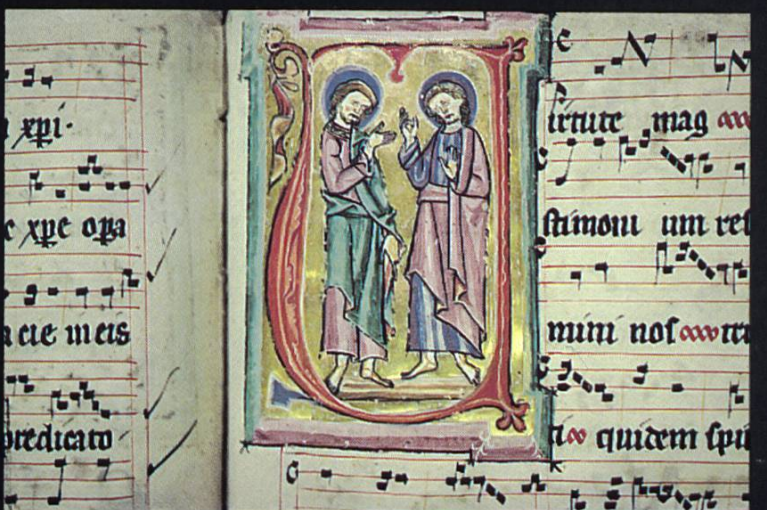 xp̄i·
xp̄e op̄a
meis
predicato
irtute mag
stimoni um res
num nos
quidem spu